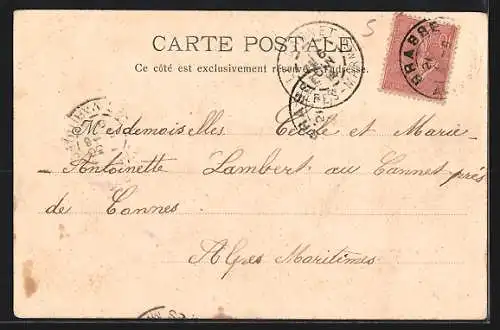 5
CARTE POSTALE
Ce côté est exclusivement réservé à l'adresse.
BRASSE
Mesdemoiselles Cécile et Marie-
- Antoinette Lambert au Cannet près
de Cannes
Alpes Maritimes